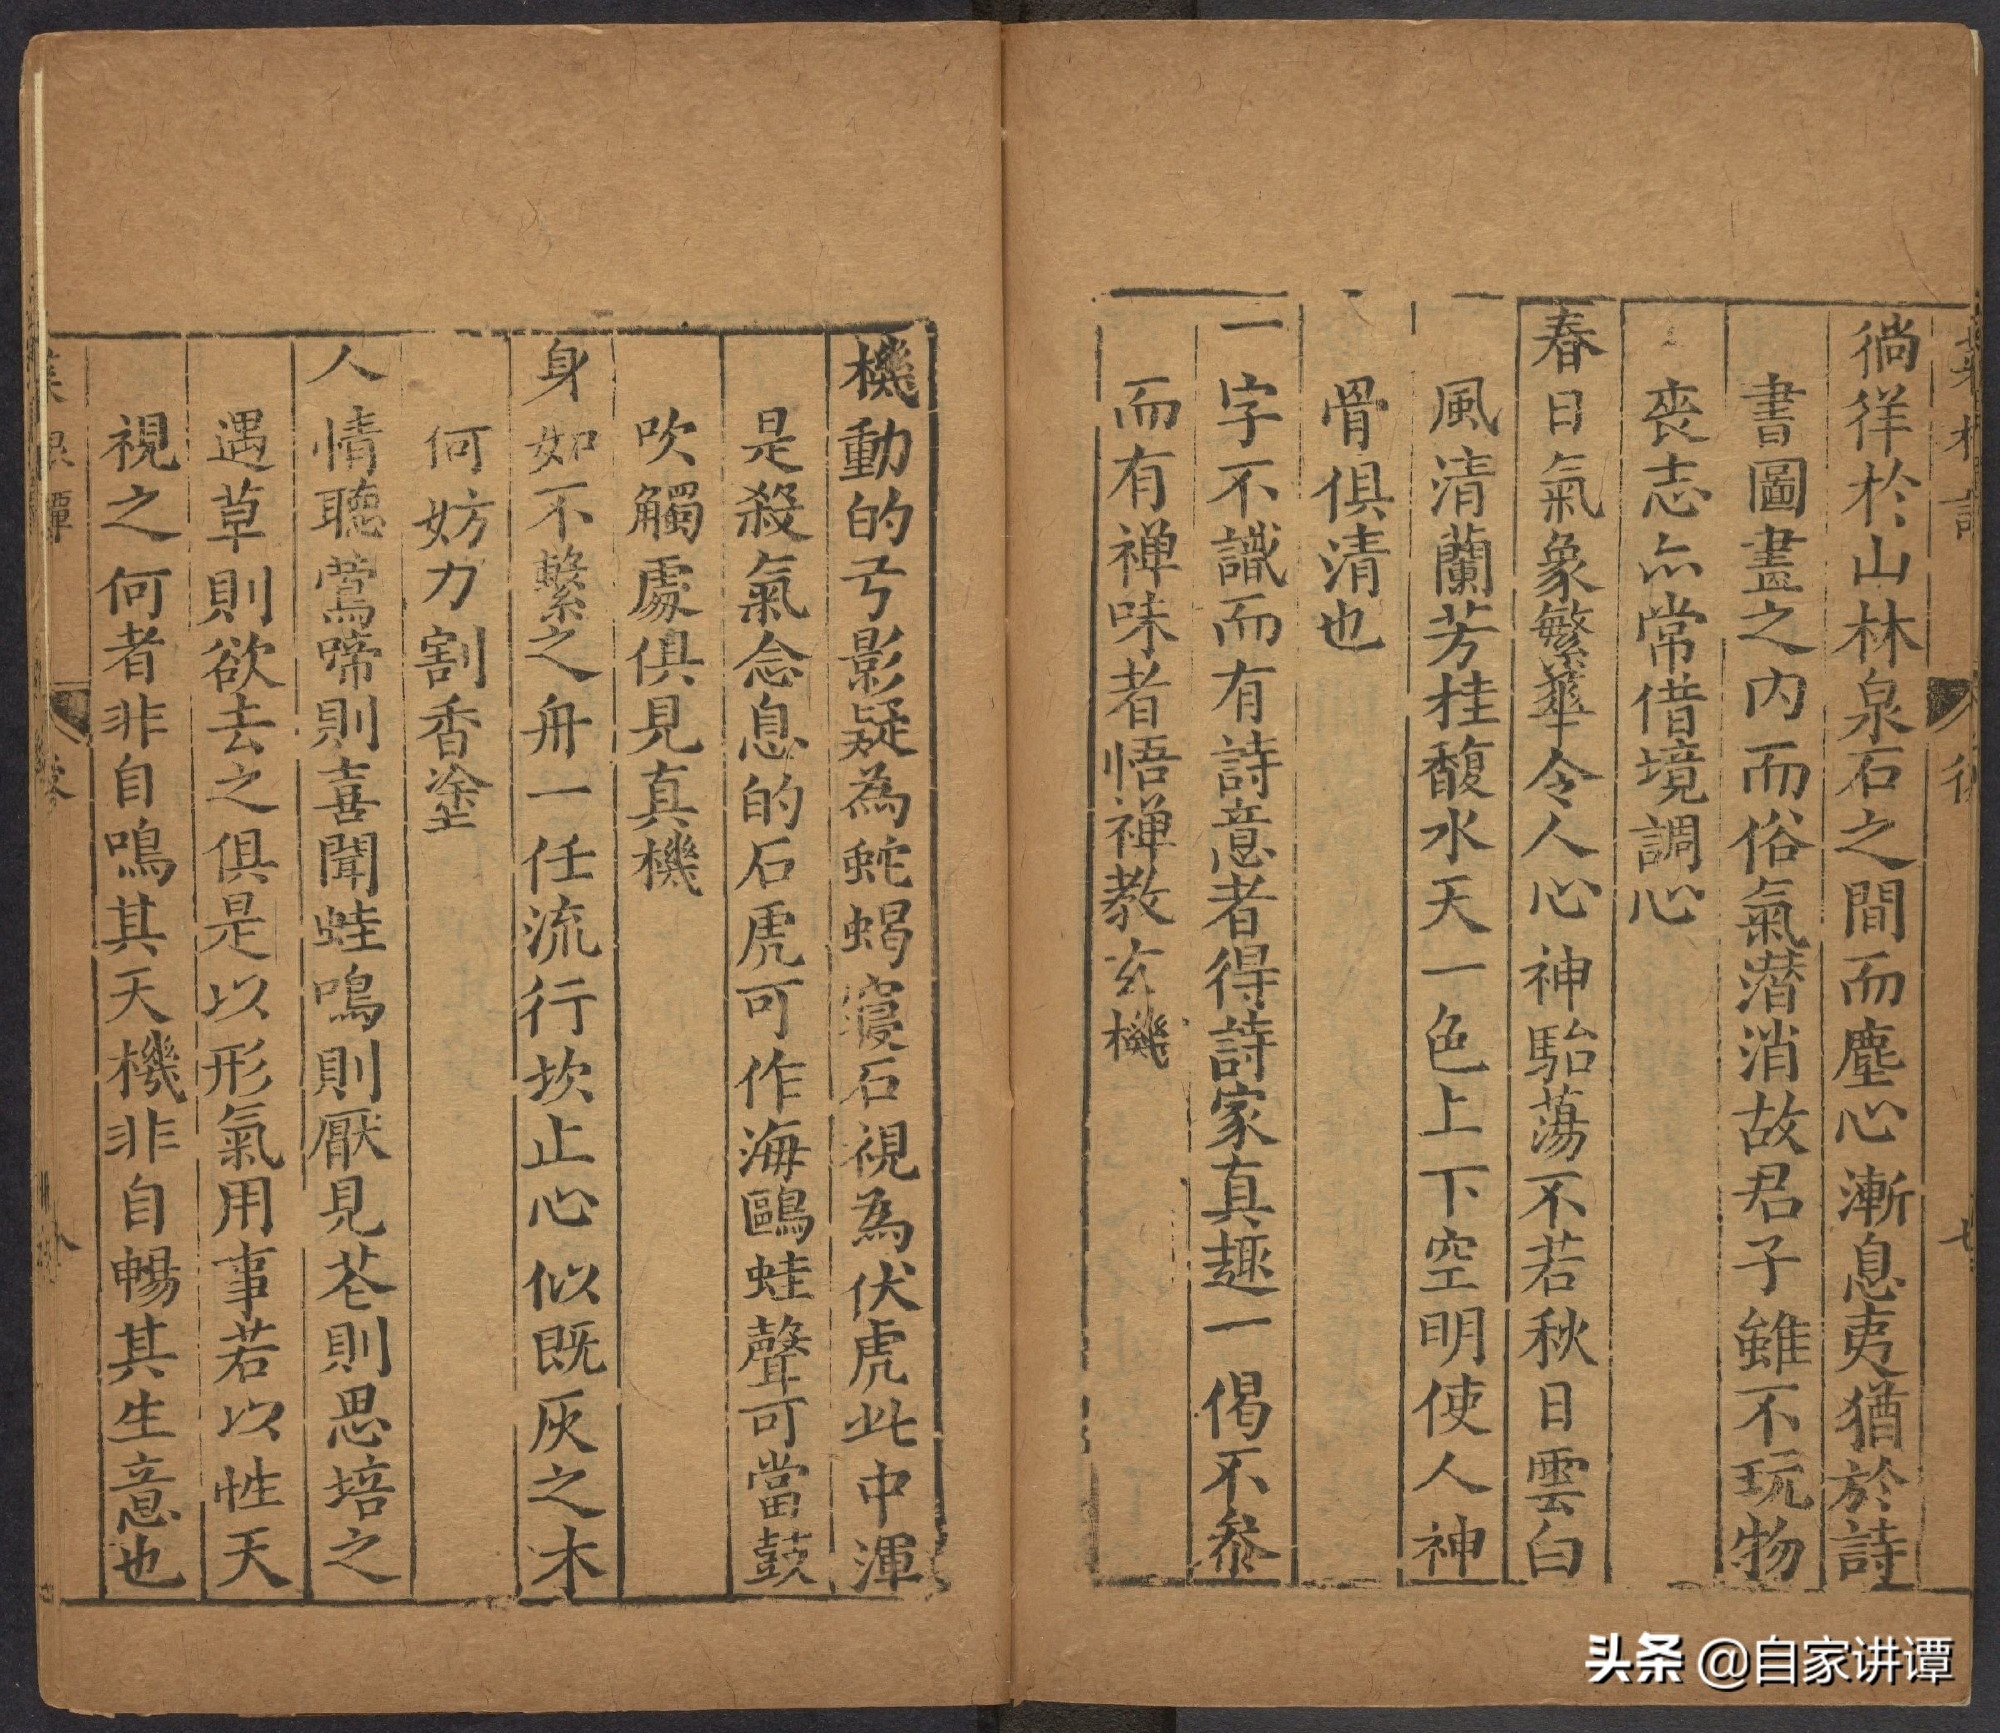 徜徉於山林泉石之間而塵心漸息夷猶於詩
書圖畫之内而俗氣潜消故君子雖不玩物
丧志亦常借境調心
春日氣象繁華令人心神駘蕩不若秋日雲白
風清蘭芳桂馥水天一色上下空明使人神
骨俱清也
一字不識而有詩意者得詩家真趣一偈不叅
而有禅味者悟禅教玄機
機動的弓影疑為蛇蝎寝石視為伏虎此中渾
是殺氣念息的石虎可作海鷗蛙聲可當鼓
吹觸處俱見真機
身如不繫之舟一任流行坎止心似既灰之木
何妨刀割香塗
人情聽鶯啼則喜聞蛙鳴則厭見花則思培之
遇草則欲去之俱是以形氣用事若以性天
視之何者非自鳴其天機非自暢其生意也
頭条 @自家讲谭